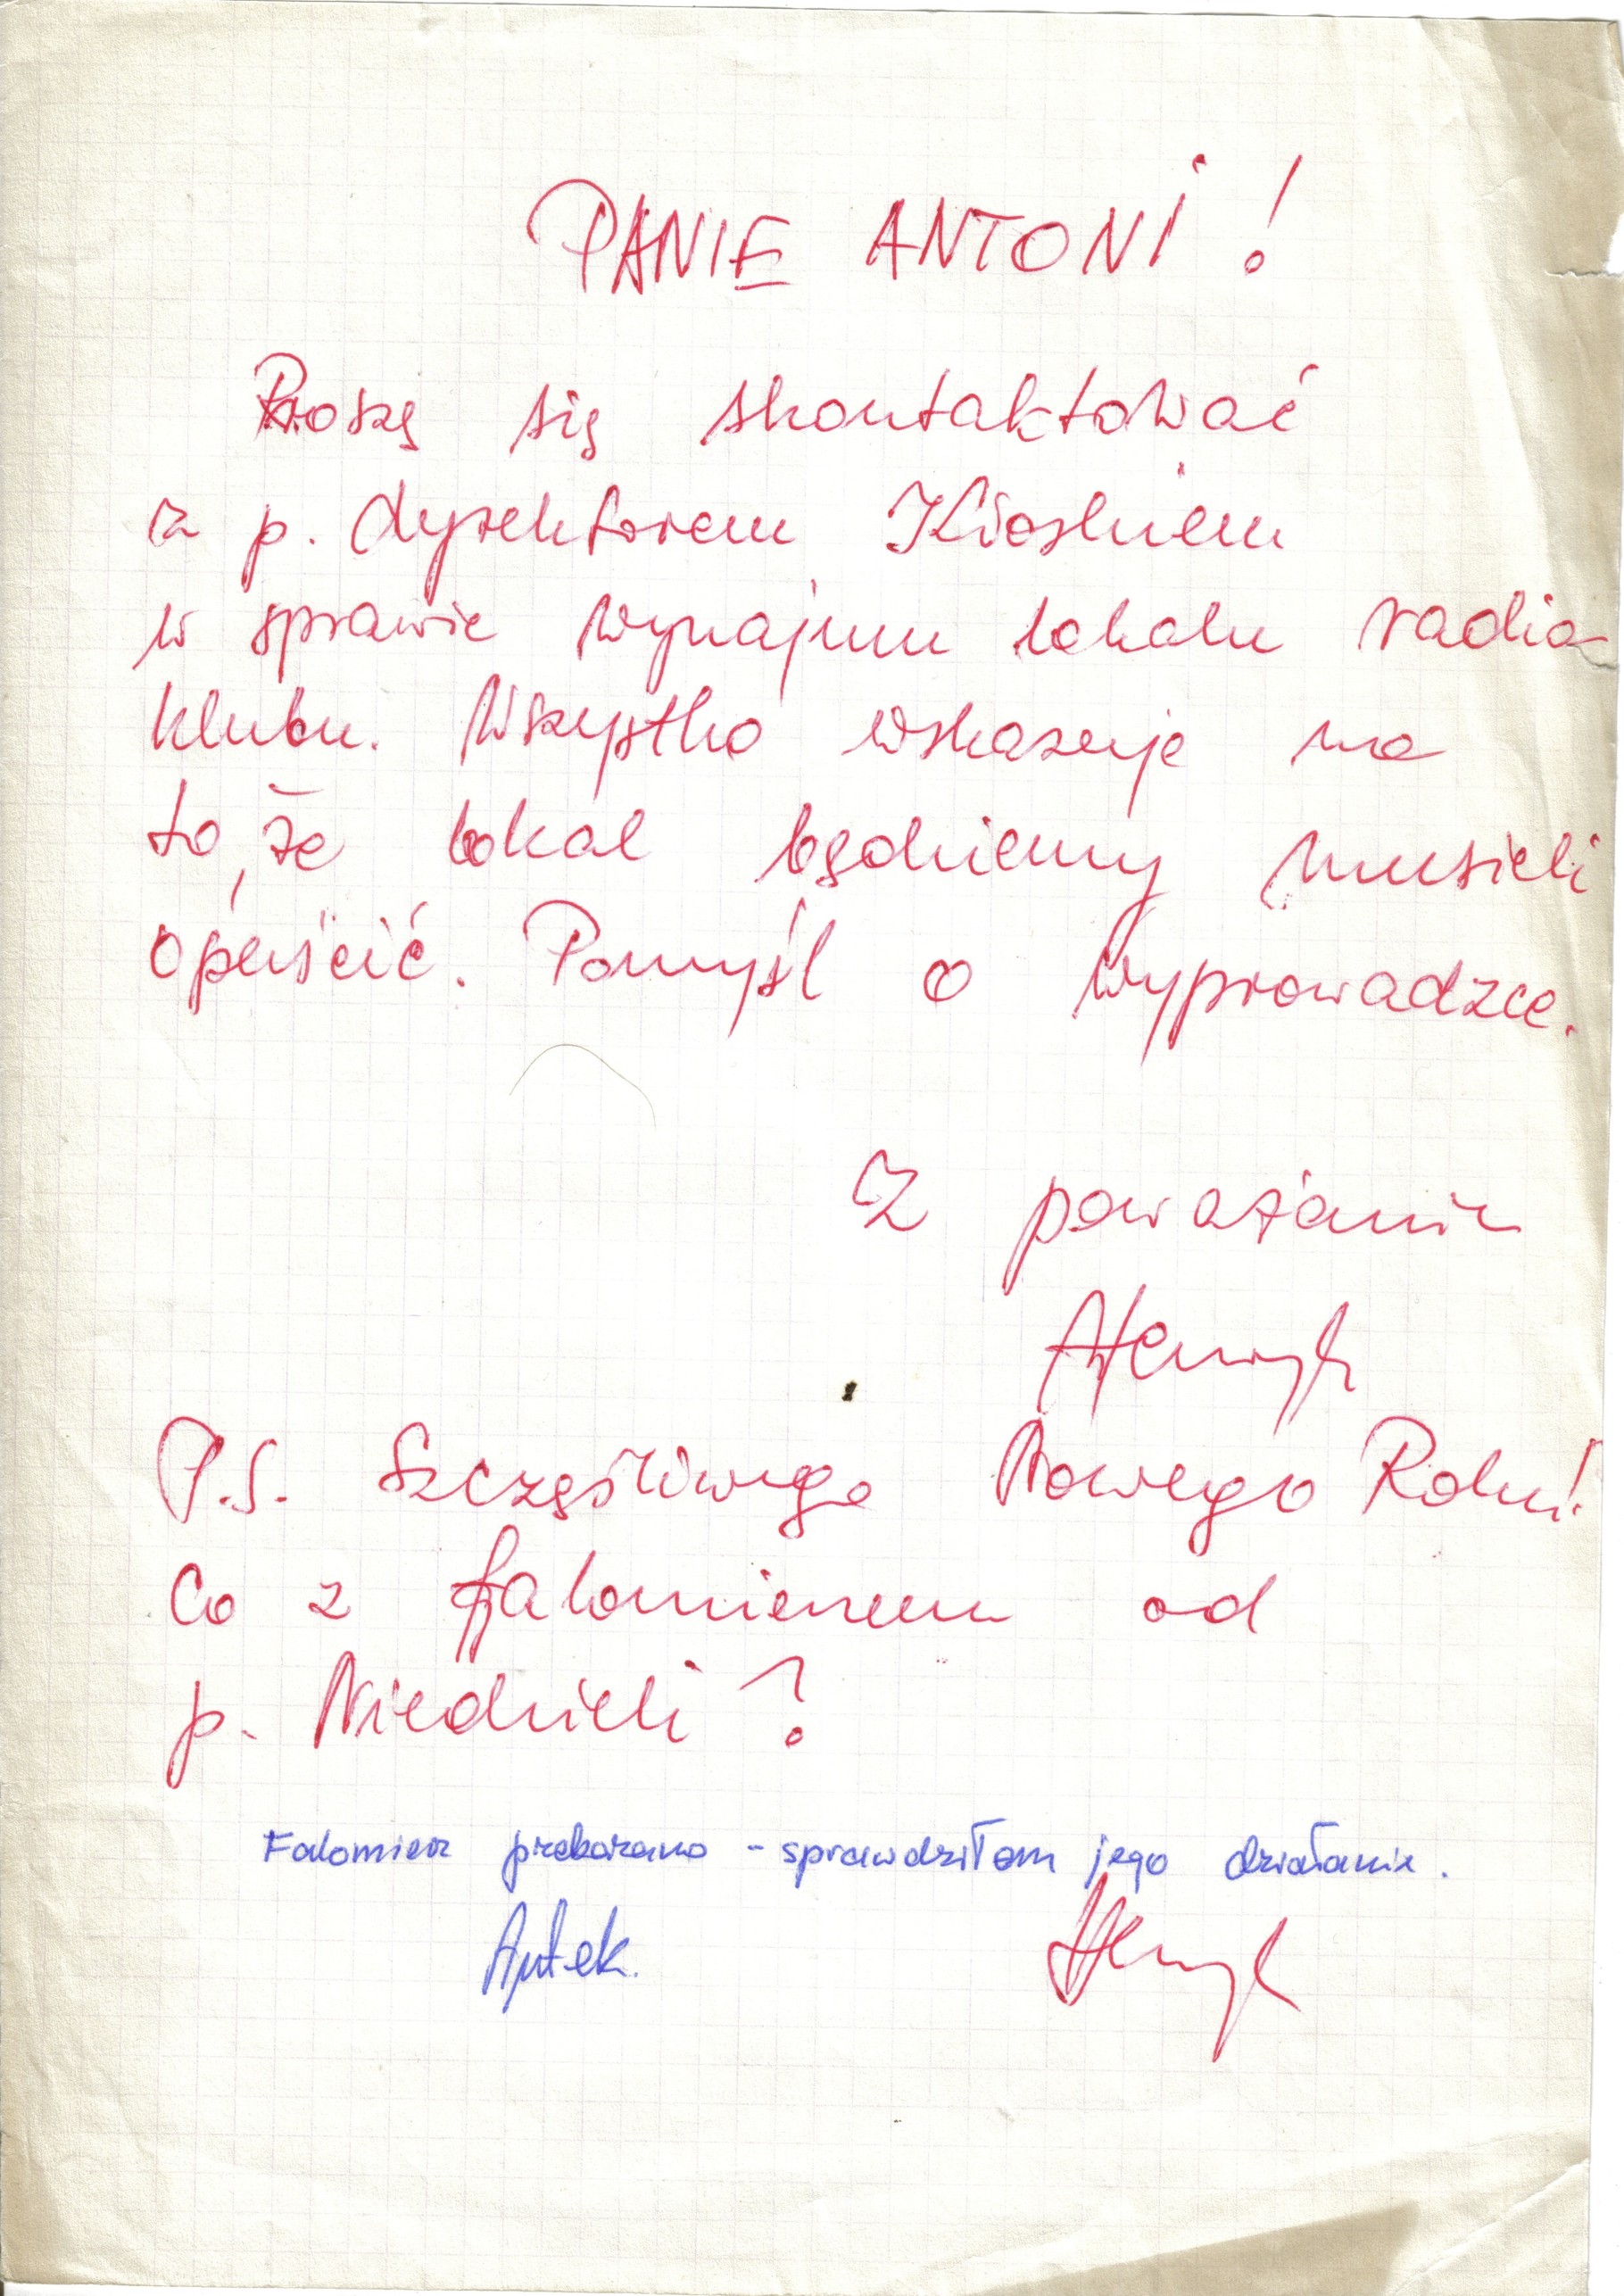 PANIE ANTONI!
Proszę się skontaktować
z p. dyrektorem
w sprawie wynajmu lokalu radio
klubu. Wszystko wskazuje na
to, że lokal będziemy musieli
opuścić. Pomyśl o wyprowadzce.
Z poważanie
Henryk
P.S. Szczęśliwego Nowego Roku!
Co z falomierzem od
p. Niedzieli?
Falomierz przekazano - sprawdziłem jego działanie.
Antek.
Henryk